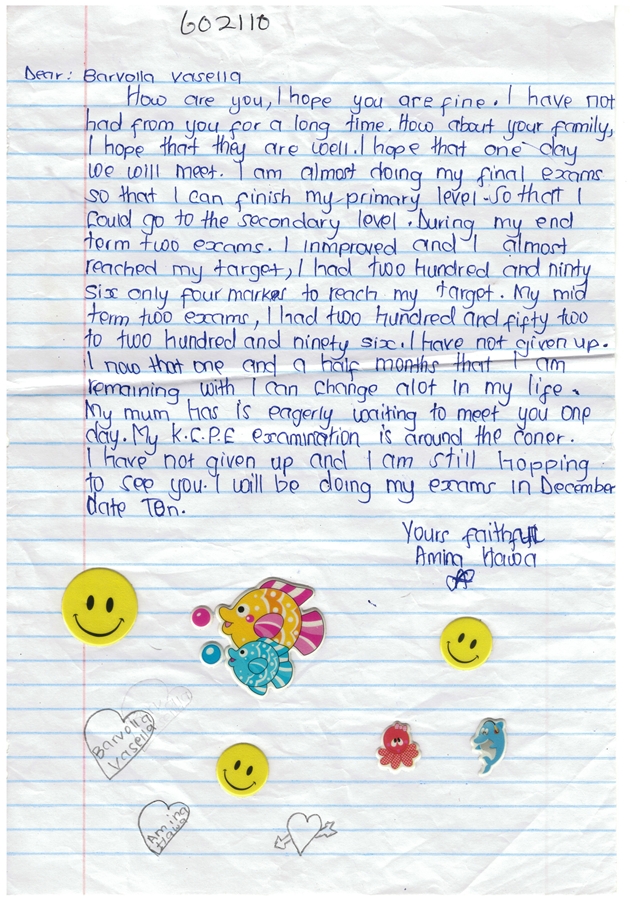 602110
Dear: Barvolla Vasella
How are you, I hope you are fine. I have not
had from you for a long time. How about your family,
I hope that they are well. I hope that one day
we will meet. I am almost doing my final exams
so that I can finish my primary level. So that I
could go to the secondary level. During my end
term two exams. I inmproved and I almost
reached my target, I had two hundred and ninty
six only four markes to reach my target. My mid
term two exams, I had two hundred and fifty two
to two hundred and ninety six. I have not given up.
I now that one and a half months that I am
remaining with I can change alot in my life.
My mum has is eagerly waiting to meet you one
day. My K.C.P.E examination is around the coner.
I have not given up and I am still hopping
to see you. I will be doing my exams in December
date Ten.
Yours faithful
Amina Hawa
Barvolla
Vasella
Amina
Hawa